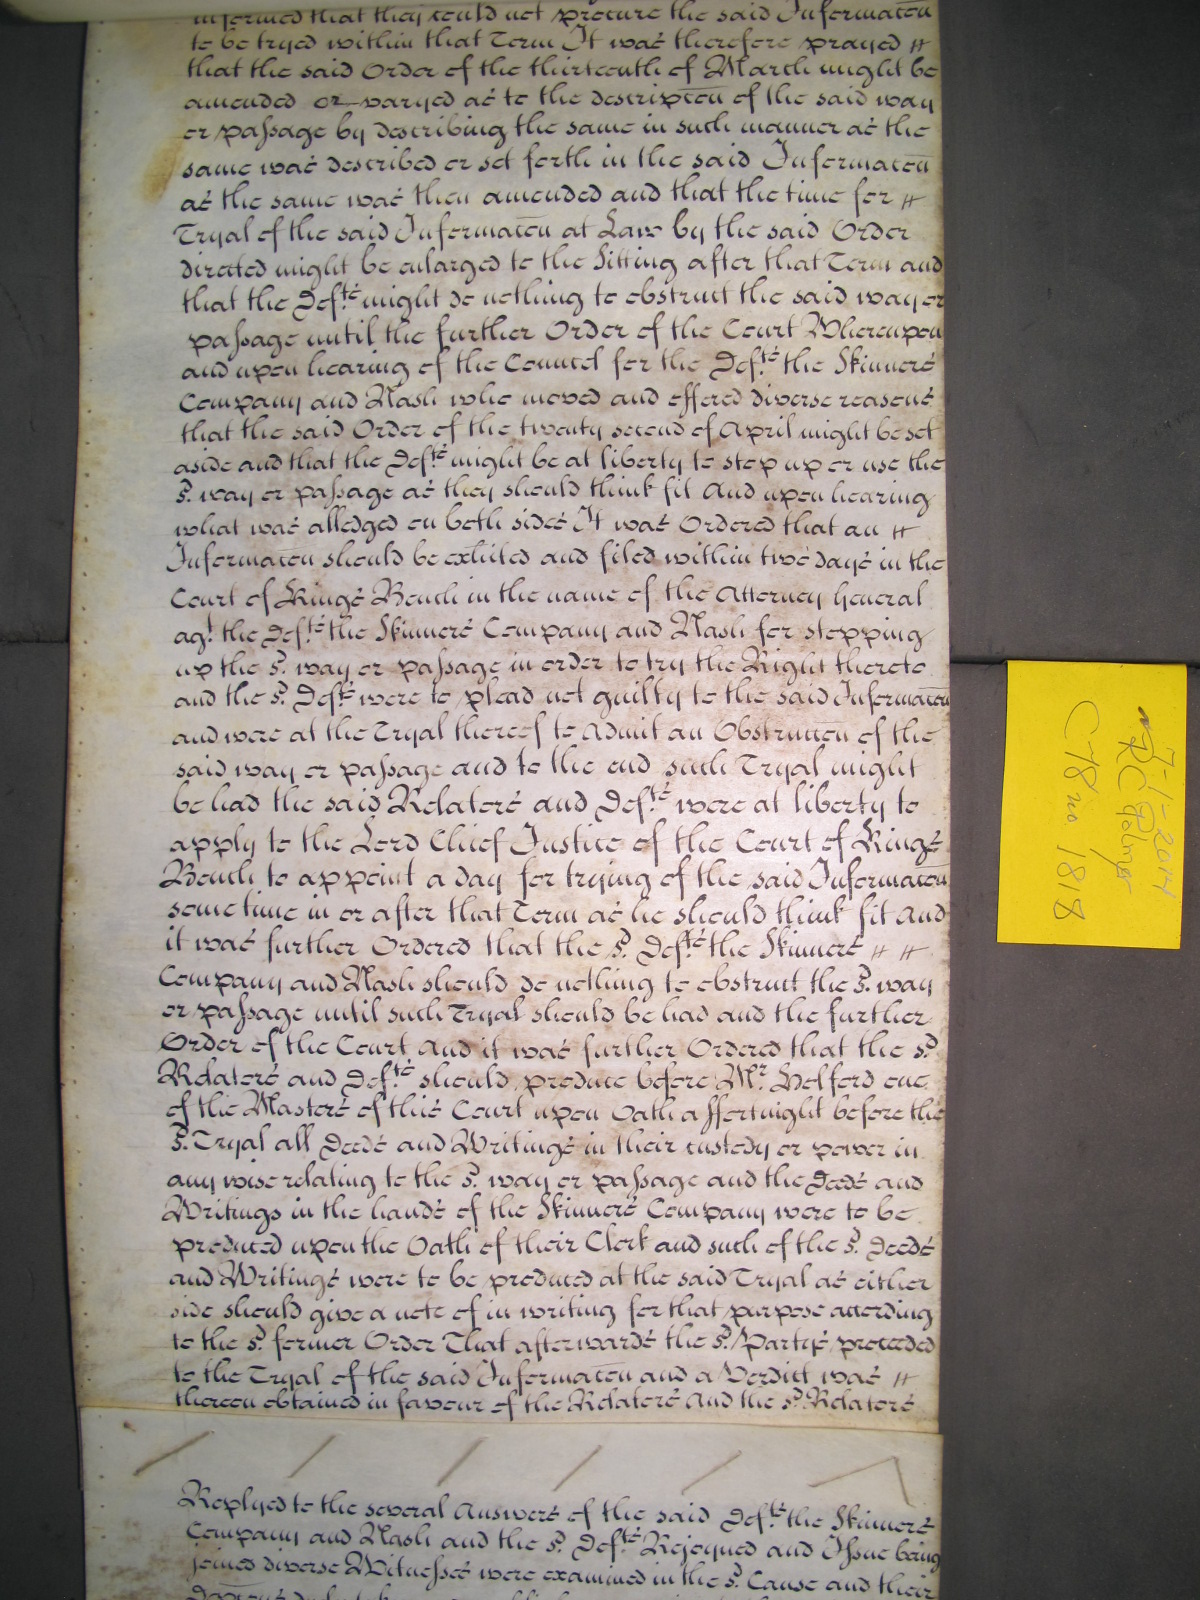 informed that they could not procure the said Informac̄on
to be tryed within that Term It was therefore prayed
that the said Order of the thirteenth of March might be
amended or varyed as to the descripc̄on of the said way
or passage by describing the same in such manner as the
same was described or set forth in the said Informac̄on
as the same was then amended and that the time for
Tryal of the said Informac̄on at Law by the said Order
directed might be enlarged to the Sitting after that Term and
that the Def.ts might do nothing to obstruct the said way or
passage until the further Order of the Court Whereupon
and upon hearing of the Councel for the Def.ts the Skinners
Company and Nash who moved and offered diverse reasons
that the said Order of the twenty second of April might be set
aside and that the Def.ts might be at liberty to stop up or use the
s.d way or passage as they should think fit And upon hearing
what was alledged on both sides It was Ordered that an
Informac̄on should be exhited and filed within two days in the
Court of Kings Bench in the name of the Attorney General
ag.t the Def.ts the Skinners Company and Nash for stopping
up the s.d way or passage in order to try the Right thereto
and the s.d Def.ts were to plead not guilty to the said Informac̄on
and were at the Tryal thereof to Admit an Obstrucc̄on of the
said way or passage and to the end such Tryal might
be had the said Relators and Def.ts were at liberty to
apply to the Lord Chief Justice of the Court of Kings
Bench to appoint a day for trying of the said Informac̄on
some time in or after that Term as he should think fit And
it was further Ordered that the s.d Def.ts the Skinners
Company and Nash should do nothing to obstruct the s.d way
or passage until such Tryal should be had and the further
Order of the Court And it was further Ordered that the s.d
Relators and Def.ts should produce before M.r Holford one
of the Masters of this Court upon Oath a ffortnight before the
s.d Tryal all Deeds and Writings in their custody or power in
any wise relating to the s.d way or passage and the Deeds and
Writings in the hands of the Skinners Company were to be
produced upon the Oath of their Clerk and such of the s.d Deeds
and Writings were to be produced at the said Tryal as either
side should give a note of in writing for that purpose according
to the s.d former Order That afterwards the s.d Parties proceeded
to the Tryal of the said Informac̄on and a Verdict was
thereon obtained in favour of the Relators And the s.d Relators
Replyed to the several Answers of the said Def.ts the Skinners
Company and Nash and the s.d Def.ts Rejoyned and Issue being
joined diverse Witnesses were examined in the s.d Cause and their
7-1-2014
C78 no 1818